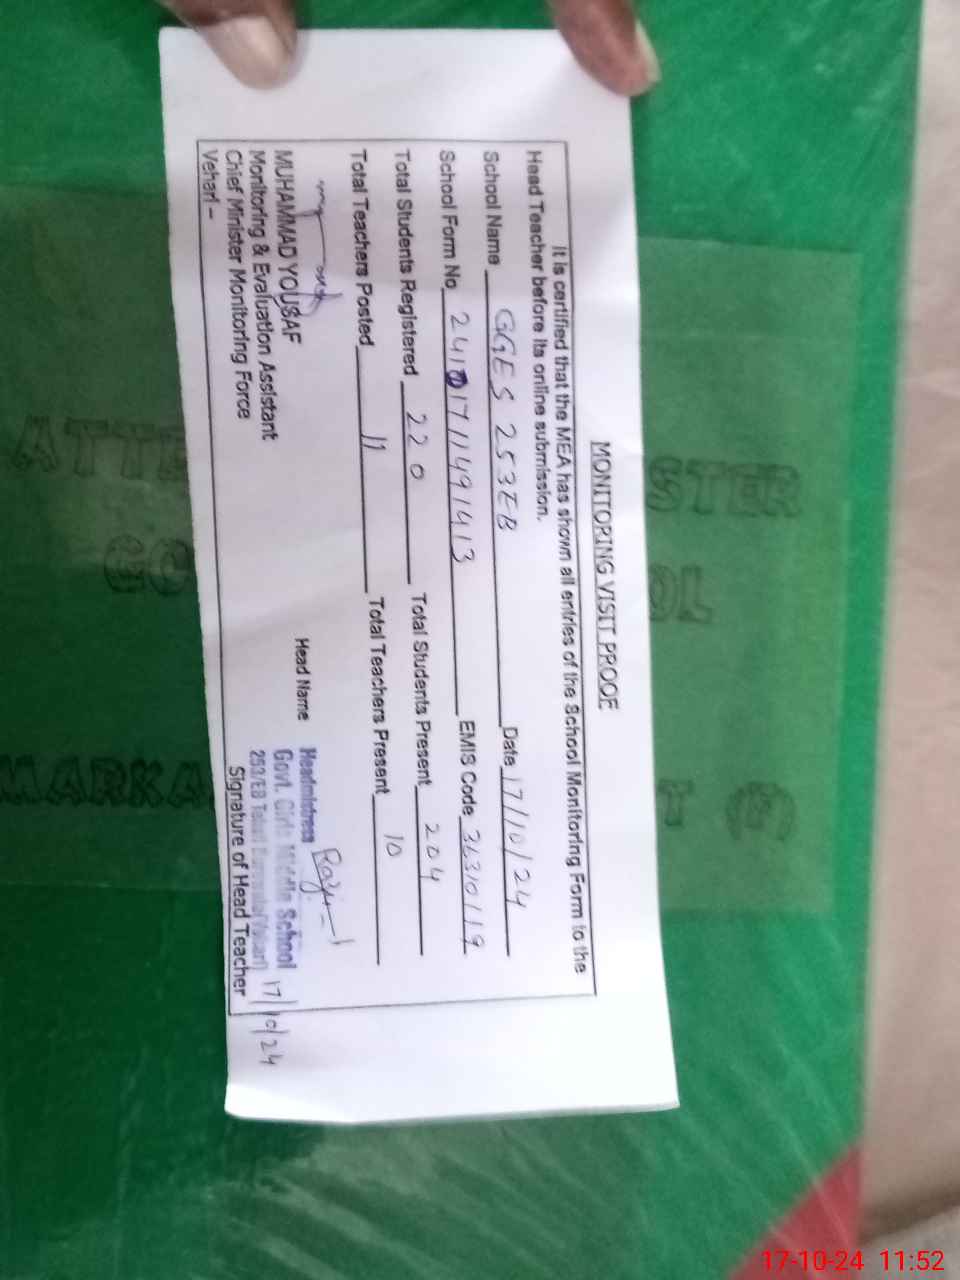 MONITORING VISIT PROOF
It is certified that the MEA has shown all entries of the School Monitoring Form to the
Head Teacher before its online submission.
School Name GGES 253EB Date 17/10/24
School Form No 2410171149 1413 EMIS Code 36310119
Total Students Registered 220 Total Students Present 204
Total Teachers Posted 11 Total Teachers Present 10
MUHAMMAD YOUSAF
Monitoring & Evaluation Assistant
Chief Minister Monitoring Force
Vehari -
Head Name
Headmistress
Govt. Girls Middle School
253/EB
17/10/24
Signature of Head Teacher
ATTE STER
GO OL
MARKA T (F)
17-10-24 11:52